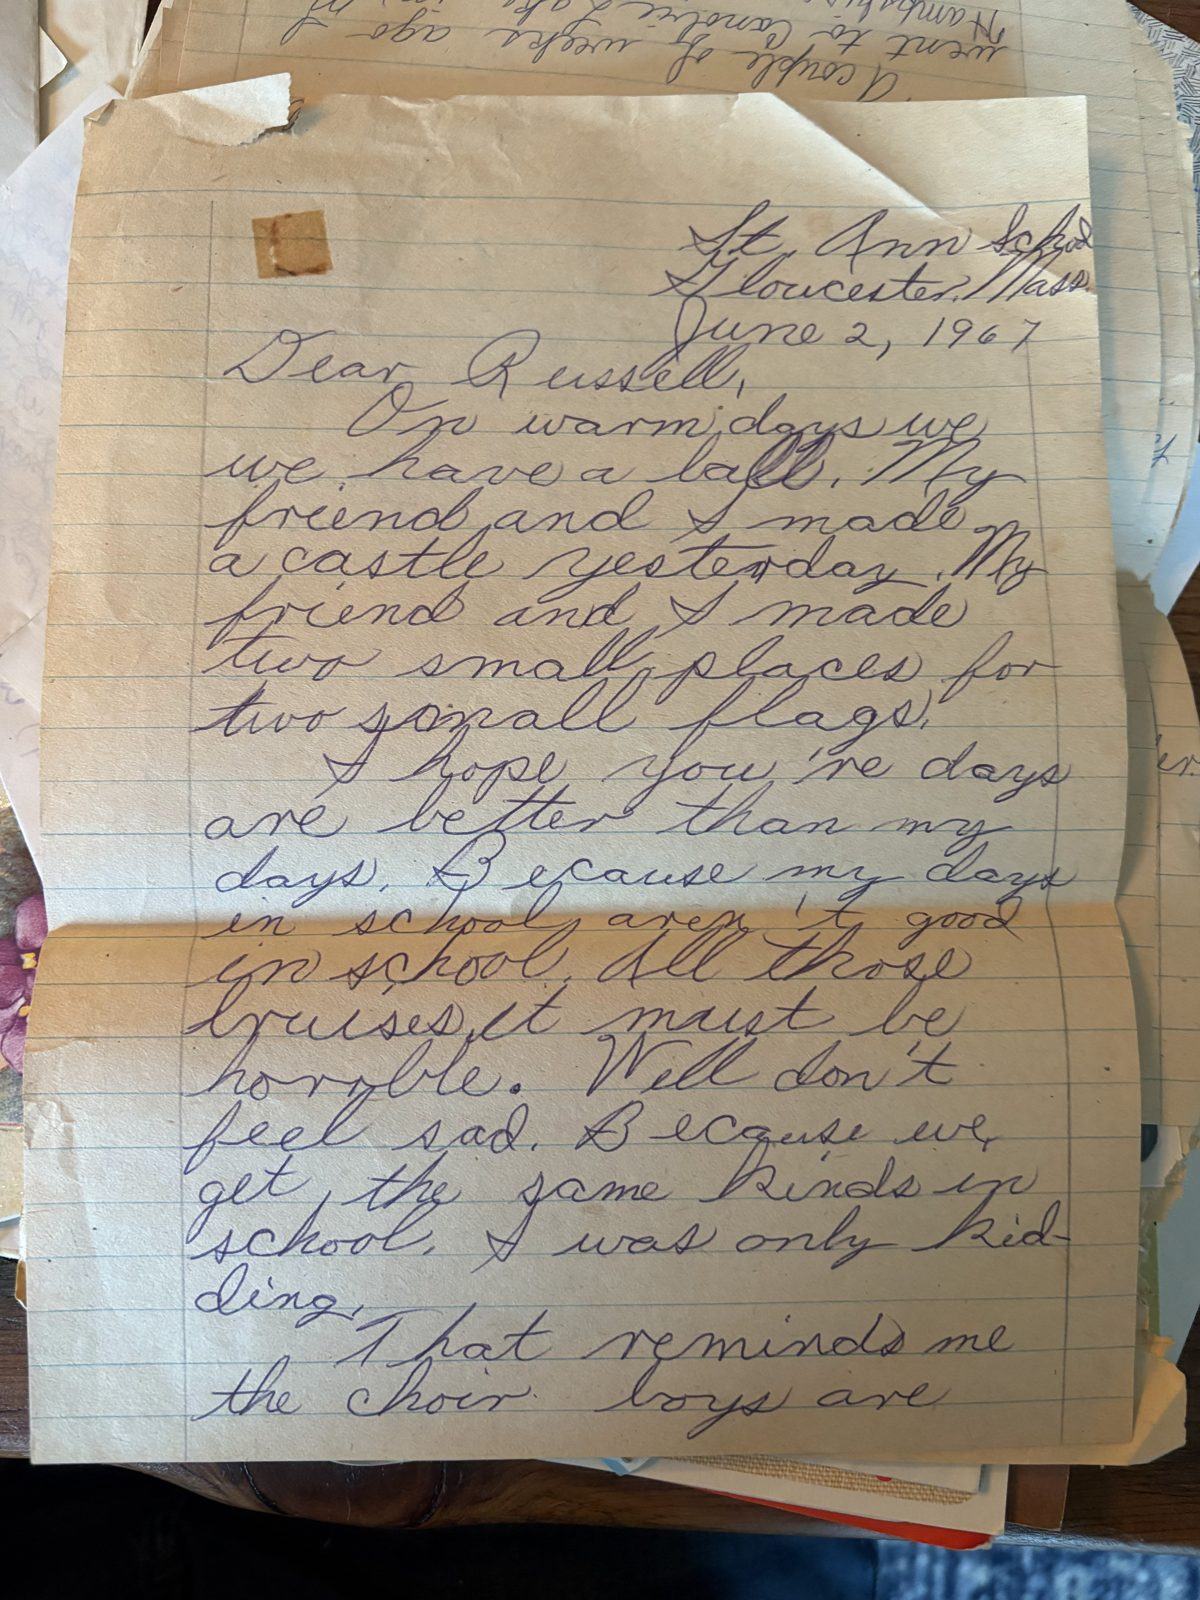 A couple of weeks ago I
went to Canobie Lake in N.
Hampshire
St. Ann School
Gloucester, Mass.
June 2, 1967
Dear Russell,
On warm days we
we have a ball. My
friend and I made
a castle yesterday. My
friend and I made
two small places for
two small flags.
I hope you're days
are better than my
days. Because my days
in school aren't good
in school. All those
bruises it must be
horrble. Well don't
feel sad. Because we
get the same kinds in
school. I was only kid-
ding.
That reminds me
the choir boys are